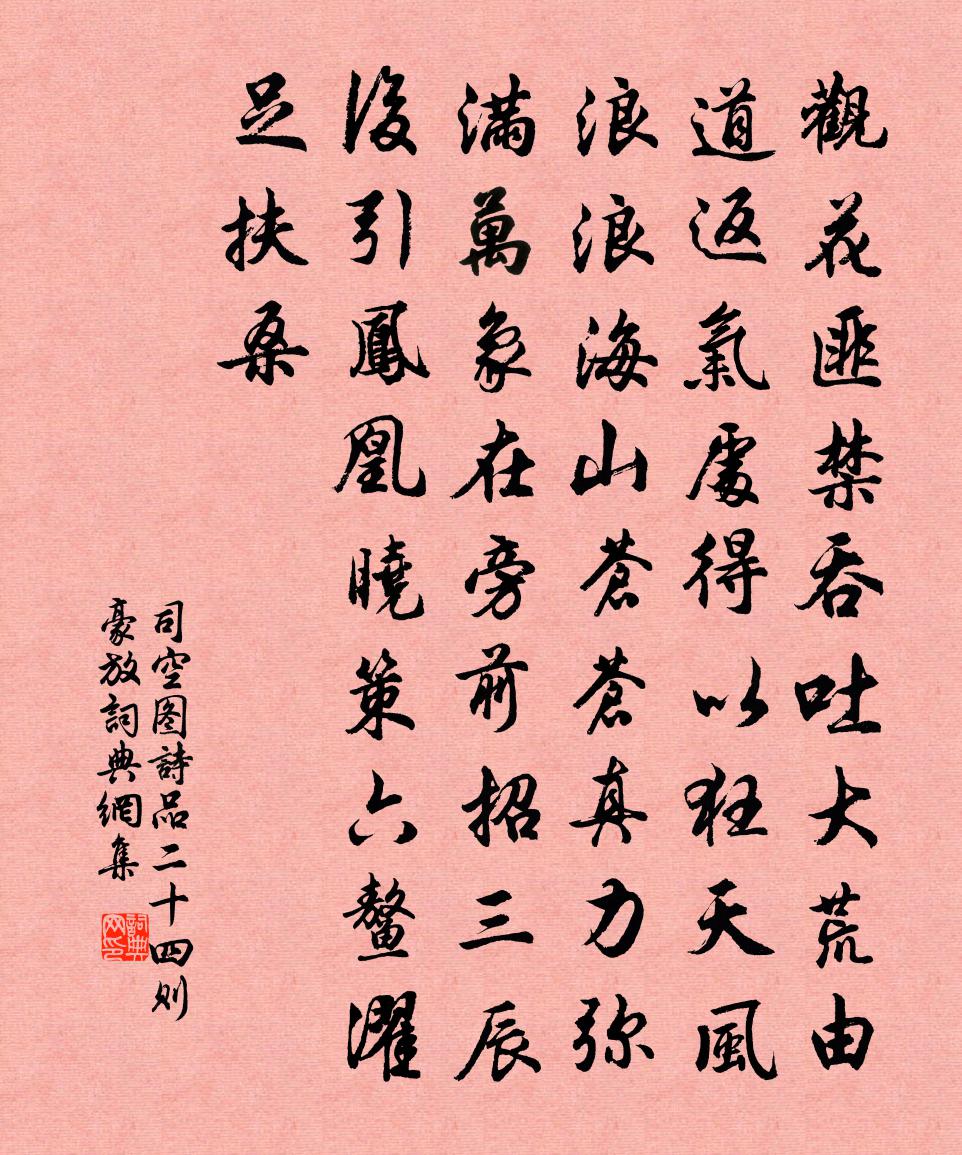 觀花匪禁吞吐大荒由
道返氣處得以狂天風
浪浪海山蒼蒼真力弥
滿萬象在旁前招三辰
後引鳳凰曉策六鳌濯
足扶桑
司空图詩品二十四则
豪放詞典網集
詞典网印